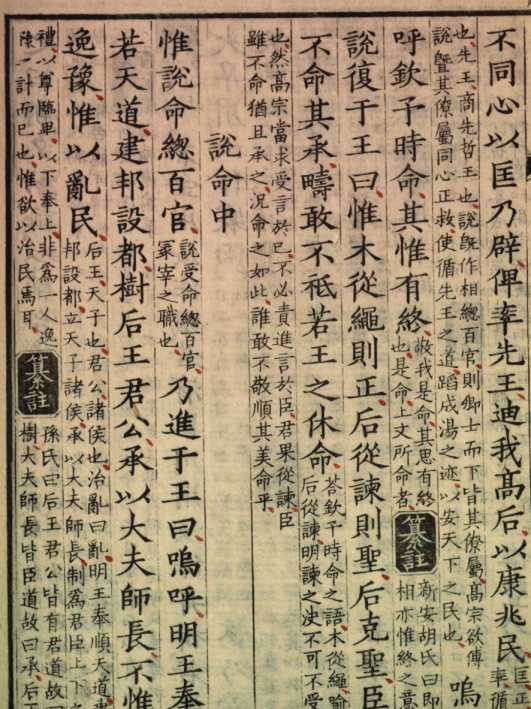 不同心以匡乃辟俾率先王迪我高后以康兆民匡正
率循
也先王商先哲王也說旣作相總百官則卿士而下皆其僚屬高宗欲傅
說曁其僚屬同心正救使循先王之道蹈成湯之迹以安天下之民也
嗚
呼欽予時命其惟有終
敬我是命其思有終
也是命上文所命者
纂註
新安胡氏曰即
相亦惟終之意
說復于王曰惟木從繩則正后從諫則聖后克聖臣
不命其承疇敢不祗若王之休命
答欽予時命之語木從繩喻
后從諫明諫之決不可不受
也然高宗當求受言於己不必責進言於臣君果從諫臣
雖不命猶且承之况命之如此誰敢不敬順其美命乎
說命中
惟說命總百官
說受命總百官
冢宰之職也
乃進于王曰嗚呼明王奉
若天道建邦設都樹后王君公承以大夫師長不惟
逸豫惟以亂民
后王天子也君公諸侯也治亂曰亂明王奉順天道建
邦設都立天子諸侯承以大夫師長制爲君臣上下之
禮以尊臨卑以下奉上非爲一人逸
豫之計而已也惟欲以治民焉耳
纂註
孫氏曰后王君公皆有君道故曰
樹大夫師長皆臣道故曰承后